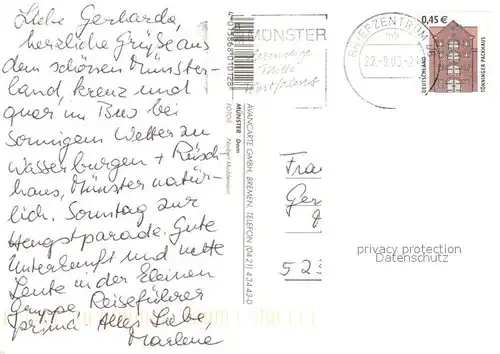 Liebe Gerharda,
herzliche Grüße aus
dem schönen Münster-
land, kreuz und
quer im Bus bei
sonnigem Wetter zu
Wasserburgen + Rüsch-
haus, Münster natür-
lich. Sonntag zur
Hengstparade. Gute
Unterkunft und nette
Leute in der kleinen
Gruppe, Reiseführer
prima. Alles Liebe,
Marlene
MÜNSTER
BRIEFZENTRUM
mb
22.-9.03-2
0,45 €
DEUTSCHLAND
TÖNNINGER PACKHAUS
AVANCARTE GMBH, BREMEN, TELEFON (04 21) 4 34 43-0
MÜNSTER Dom
FOTOS:
Frau
Ger
523
privacy protection
Datenschutz